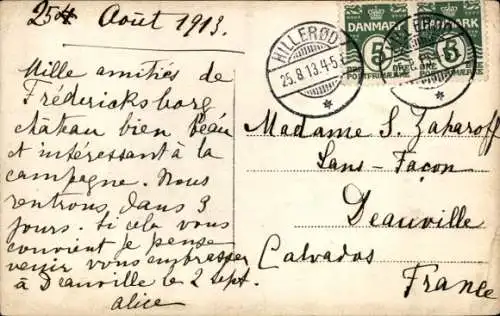 25 Août 1913.
Mille amitiés de
Frédericksborg
château bien beau
et intéressant à la
campagne. Nous
rentrons dans 3
jours. Si cela vous
convient je pense
venir vous embrasser
à Deauville le 2 sept.
alice
HILLERØD
25.8.13.4-5
DANMARK
5
POSTFRIMÆRKE
DANMARK
5
POSTFRIMÆRKE
Madame S. Zaharoff
Sans-Façon
Deauville
Calvados
France